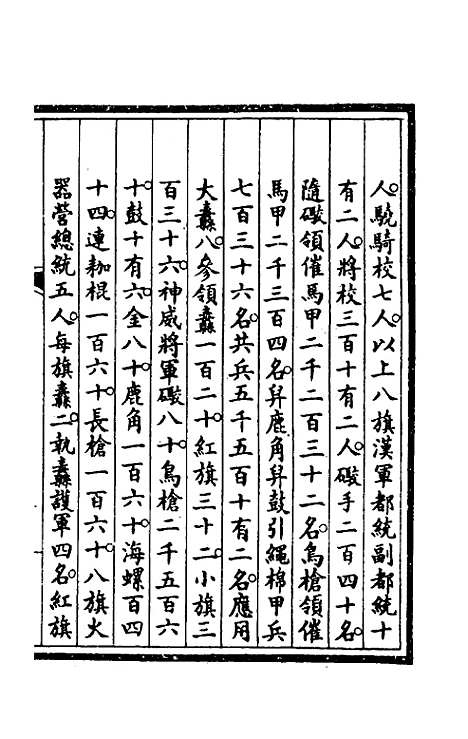 人驍騎校七人以上八旗漢軍都統副都統十
有二人將校三百十有二人礮手二百四十名
隨礮領催馬甲二千二百三十二名鳥槍領催
馬甲二千三百四名舁鹿角舁鼓引繩棉甲兵
七百三十六名共兵五千五百十有二名應用
大纛八參領纛一百二十紅旗三十二小旗三
百三十六神威將軍礮八十鳥槍二千五百六
十鼓十有六金八十鹿角一百六十海螺百四
十四連耞棍一百六十長槍一百六十八旗火
器營總統五人每旗纛二執纛護軍四名紅旗